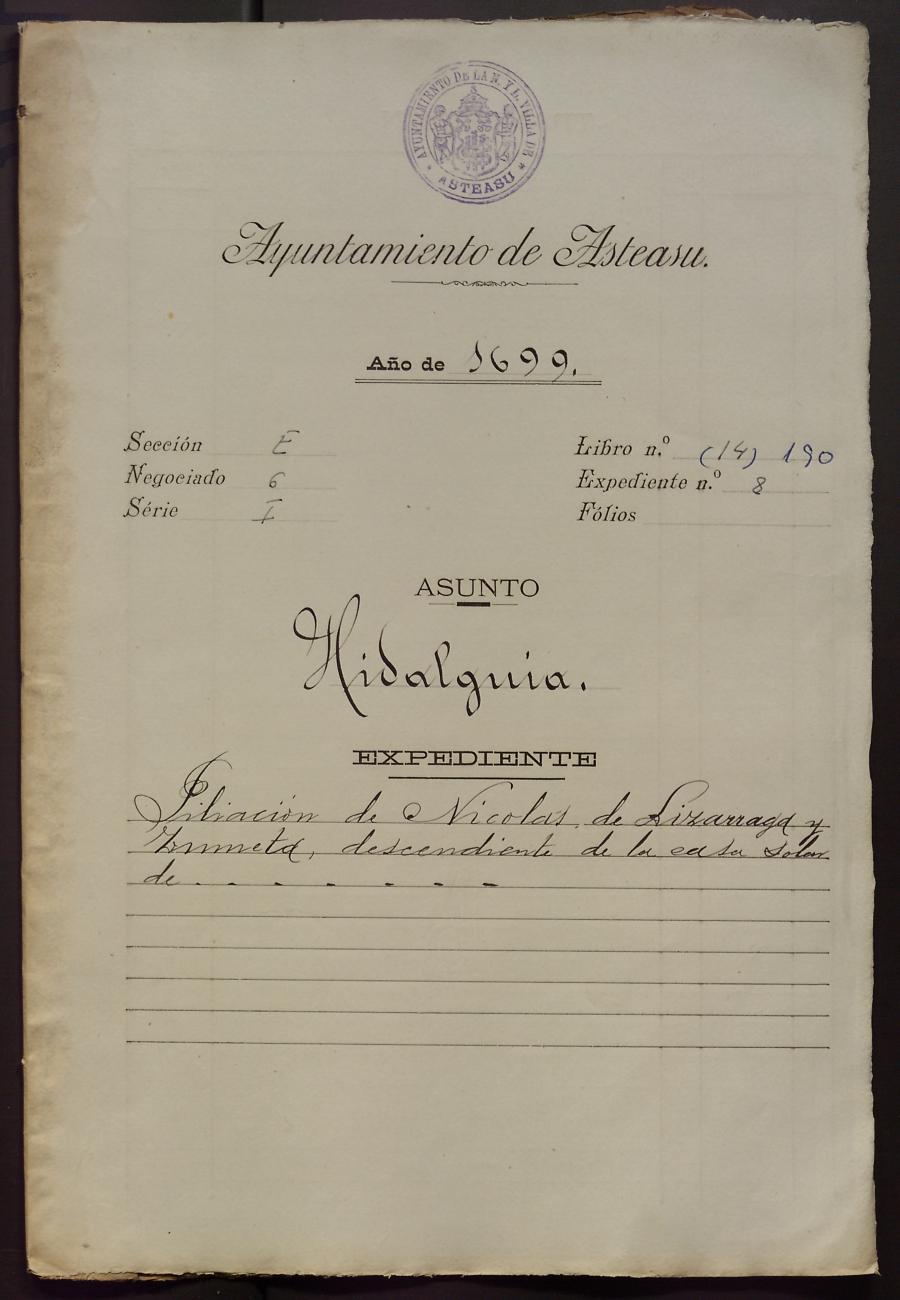 AYUNTAMIENTO DE LA N. Y L. VILLA DE
* ASTEASU *
Ayuntamiento de Asteasu.
Año de 1699.
Sección E
Negociado 6
Série I
Libro n.º (14) 190
Expediente n.º 8
Fólios
ASUNTO
Hidalguia.
EXPEDIENTE
Filiación de Nicolas de Lizarraga y
Zumeta, descendiente de la casa solar
de - - - - - - -